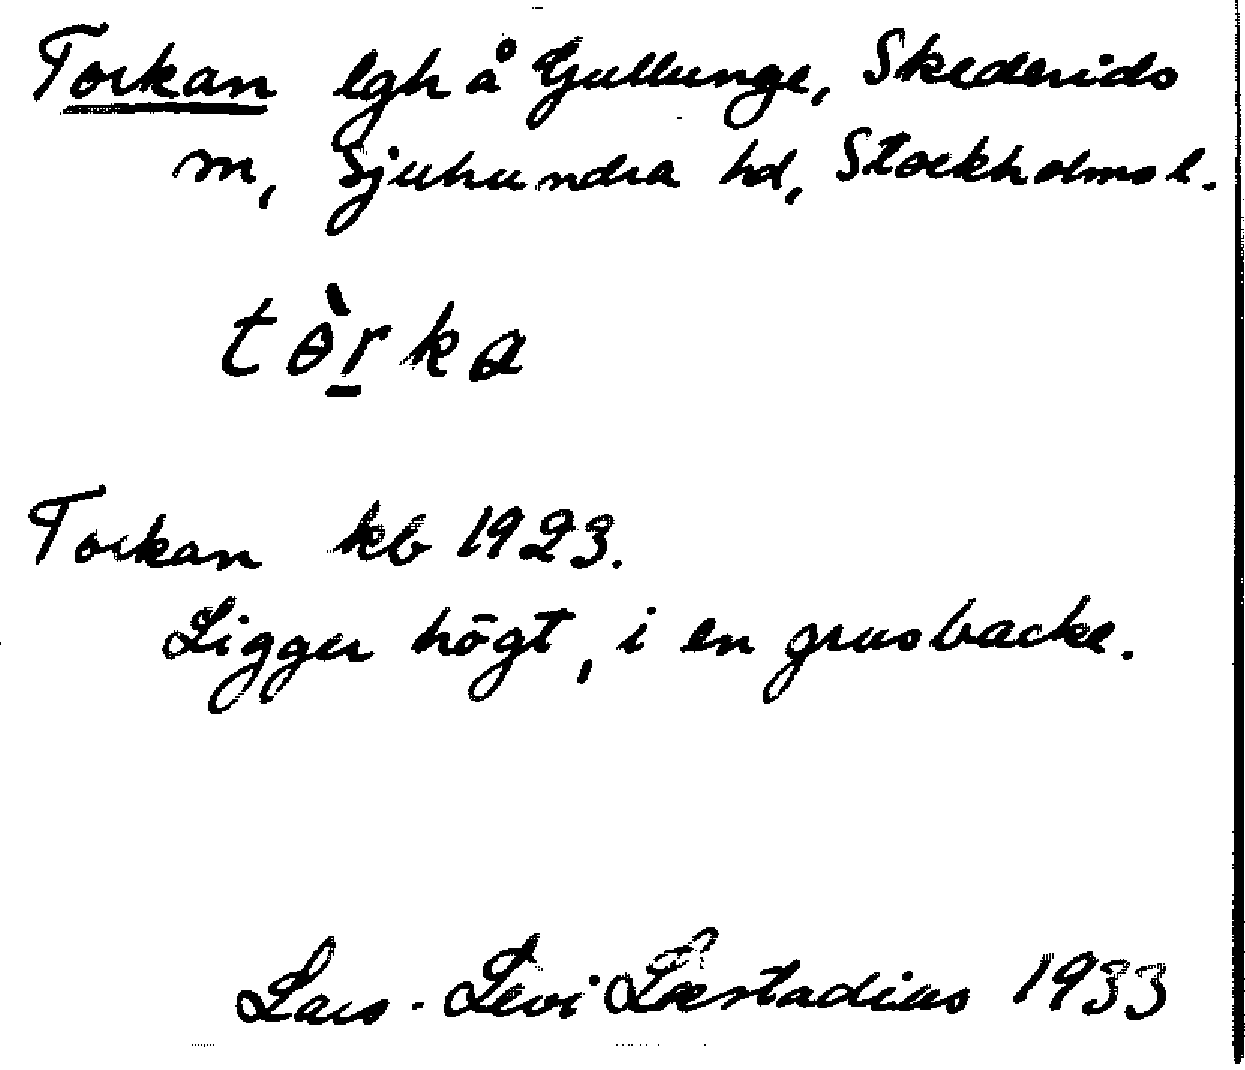 Torkan lgh å Gullunge, Skederids
m, Sjuhundra hd, Stockholms l.
tɵ̀r̠ka
Torkan kb 1923.
Ligger högt, i en grusbacke.
Lars-Levi Læstadius 1933